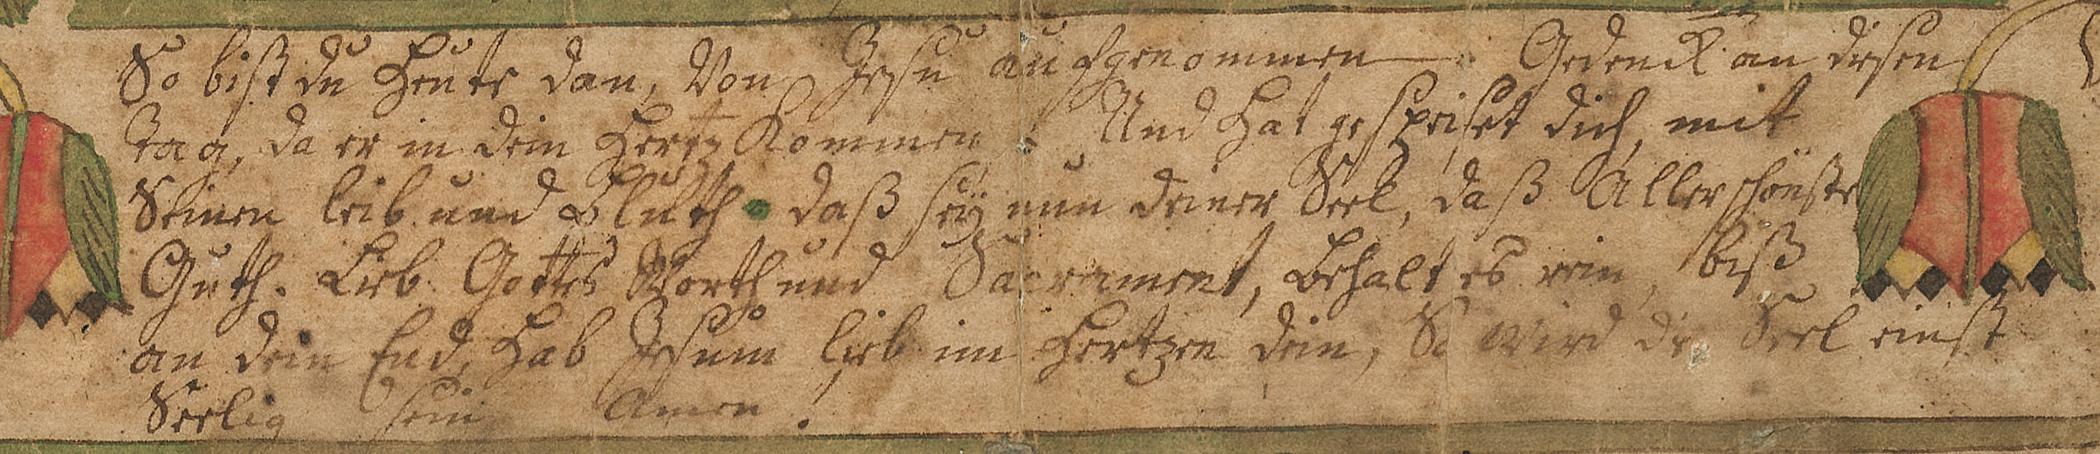 So bist du Heute dan, Von Jesu aufgenommen Gedenck an disen
Tag, da er in dein Hertz Kommen: Und Hat gespeiset dich, mit
Seinen leib und Bluth. daß seÿ nun deiner Seel, daß Allerschönste
Guth. Lieb Gottes Worth und Sacrament, Behalt es rein, biß
an dein End, Hab Jesum lieb im Hertzen dein, So wird die Seel einst
Seelig sein Amen.